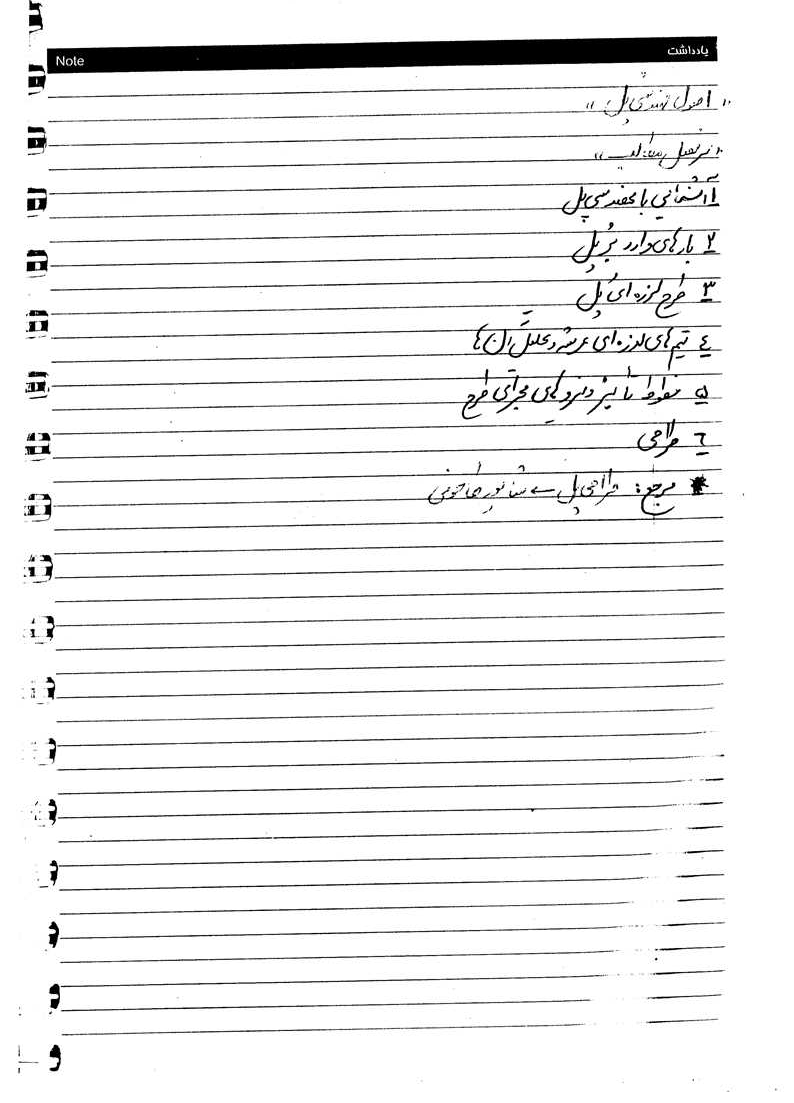 یادداشت
Note
"اصول مهندسی پل"
"سرفصل مطالب"
۱ آشنائی با مهندسی پل
۲ بارهای وارد بر پل
۳ طرح لرزه ای پل
٤ تیم های لرزه ای عرشه و تحلیل آن ها
۵ خطوط تأثیر و نیروهای مبنای طرح
٦ طراحی
* مرجع: طراحی پل شاپور طاحونی